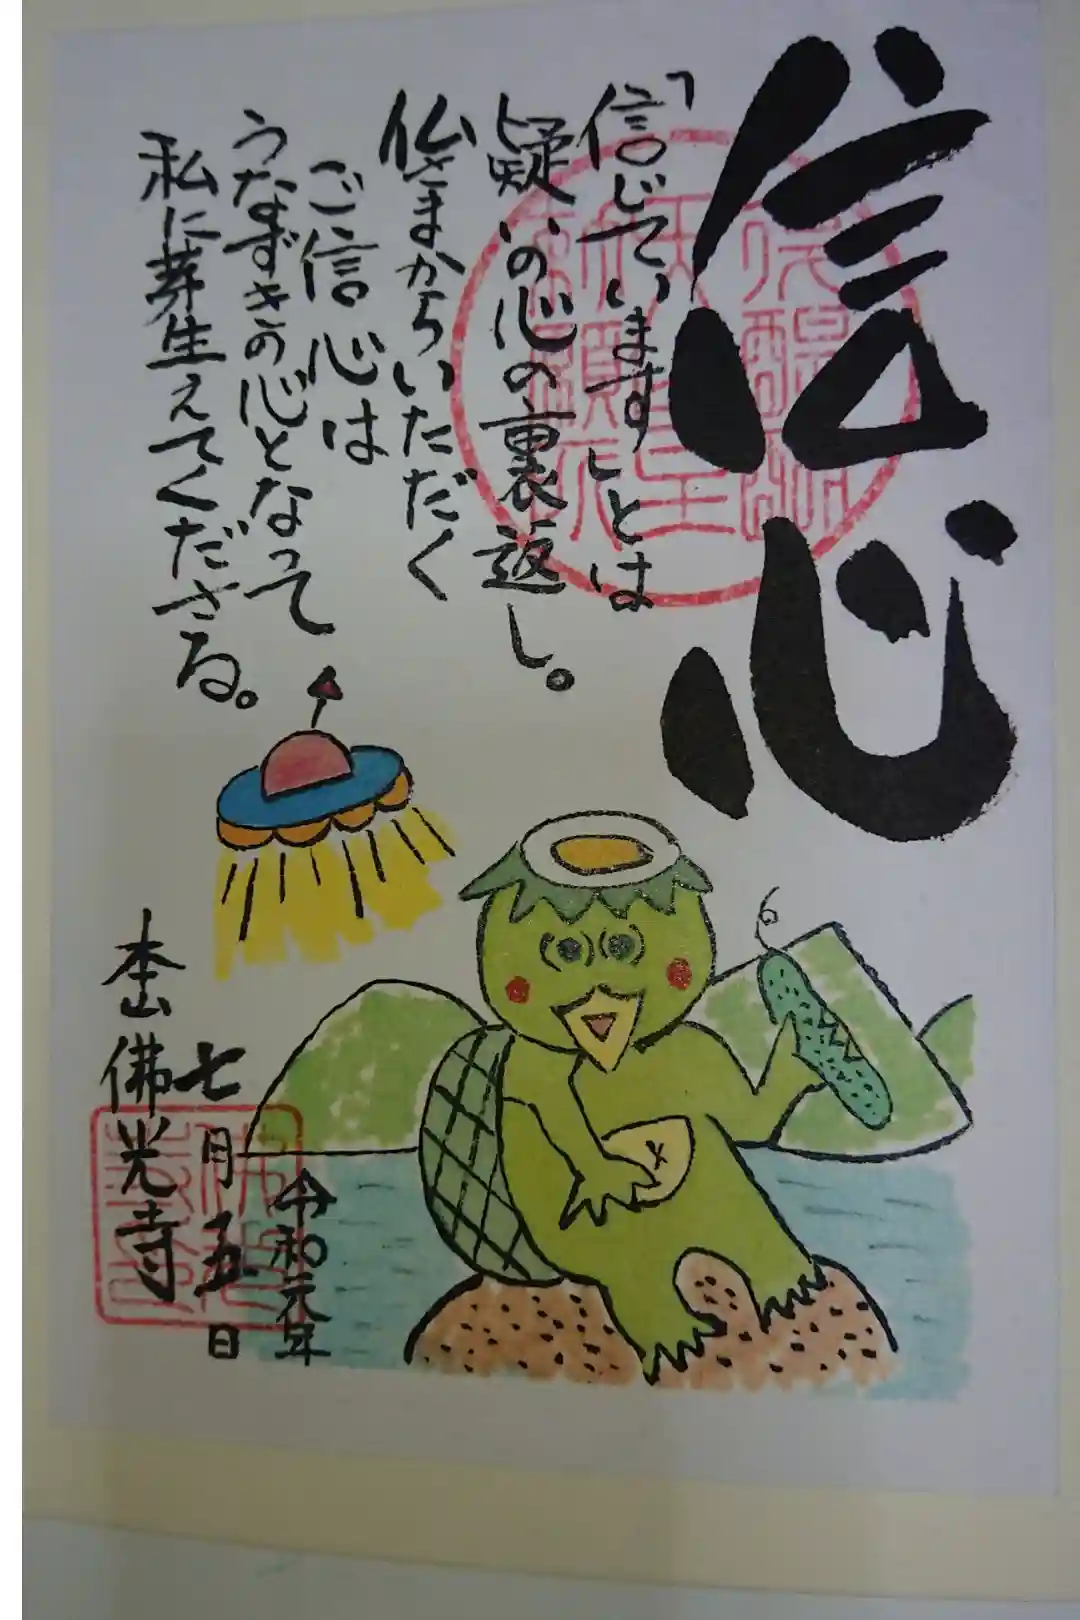 信心
「信じています」とは
疑いの心の裏返し。
仏さまからいただく
ご信心は
うなずきの心となって
私に芽生えてくださる。
令和元年
七月五日
本山佛光寺